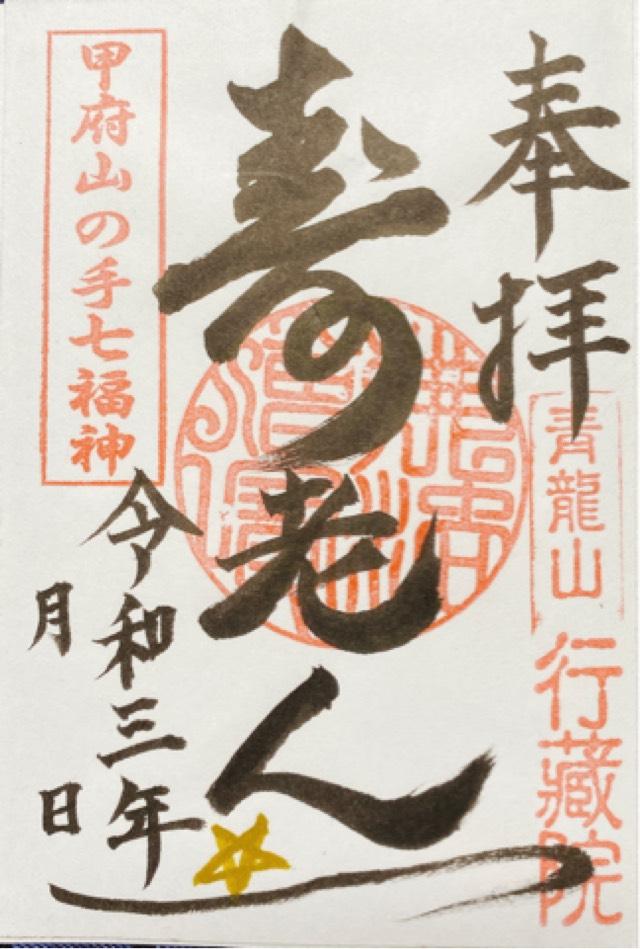 奉拝
青龍山
行蔵院
寿老人
甲府山の手七福神
令和三年
月 日